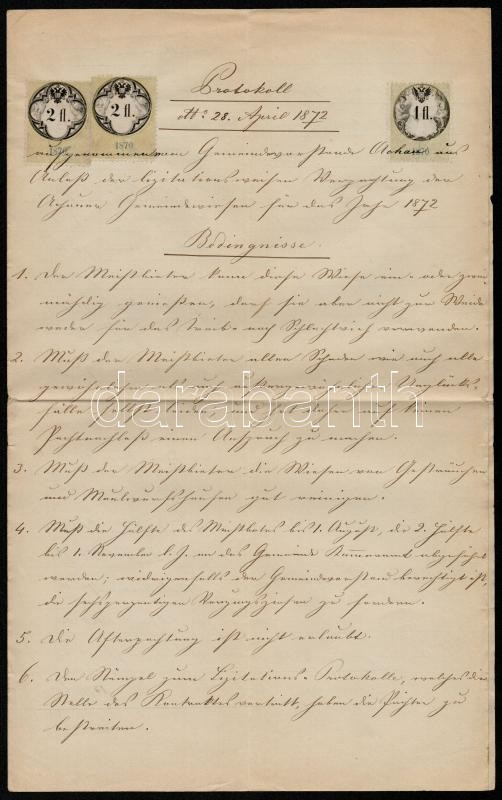 Protokoll
dto 28. April 1872
2 fl. 2 fl. 1 fl.
1870 1870 1870
aufgenommen vom Gemeindevorstande Achau aus
Anlaß der lizitationsweisen Verpachtung der
Achauer Gemeindewiesen für das Jahr 1872
Bedingnisse.
1. Der Meistbieter kann diese Wiese ein- oder zwei-
mähdig genießen, darf sie aber nicht zur Weide
weder für das Trieb- noch Schlachtvieh verwenden.
2. Muß der Meistbieter allen Schaden wie auch alle
gewöhnlichen als auch außergewöhnlichen Unglücks-
fälle selbst leiden und hat daher auf keinen
Pachtnachlaß einen Anspruch zu machen.
darabanth
3. Muß der Meistbieter die Wiesen von Gesträuchen
und Maulwurfshaufen gut reinigen.
4. Muß die Hälfte des Meistbotes bis 1. August, die 2. Hälfte
bis 1. November d. J. an das Gemeinde Kammeramt abgeführt
werden; widrigenfalls der Gemeindevorstand berechtigt ist,
die sechsperzentigen Verzugszinsen zu fordern.
5. Die Afterpachtung ist nicht erlaubt.
6. Den Stempel zum Lizitations-Protokolle, welches die
Stelle des Kontraktes vertritt, haben die Pächter zu
bestreiten.